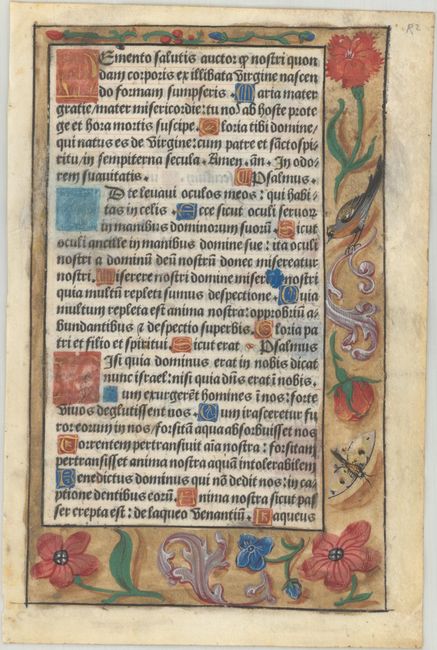 R2
Memento salutis auctor q̇ nostri quon
dam corporis ex illibata virgine nascen
do formam sumpseris. Maria mater
gratie/mater misericordie: tu nos ab hoste prote
ge et hora mortis suscipe. Gloria tibi domine/
qui natus es de virgine: cum patre et sācto spi-
ritu/in sempiterna secula. Amen. añ. In odo-
rem suavitatis. Psalmus.
AD te levavi oculos meos: qui habi-
tas in celis. Ecce sicut oculi servorum
in manibus dominorum suorū. Sicut
oculi ancille in manibus domine sue: ita oculi
nostri a dominū deū nostrū donec misereatur
nostri. Miserere nostri domine miser nostri
quia multū repleti sumus despectione. Quia
multum repleta est anima nostra: opprobriū a-
bundantibus et despectio superbis. Gloria pa-
tri et filio et spiritui. Sicut erat. Psalmus
NIsi quia dominus erat in nobis dicat
nunc israel: nisi quia dñs erat ī nobis.
Cum exurgerent homines ī nos: forte
vivos deglutissent nos. Cum irasceretur fu-
ror eorum in nos/forsitā aqua absorbuisset nos
Torrentem pertransivit aīa nostra: forsitan
pertransisset anima nostra aquā intolerabilem
Benedictus dominus qui nō dedit nos: in ca-
ptione dentibus eorū. Anima nostra sicut pas-
ser erepta est: de laqueo venantiū. Laqueus